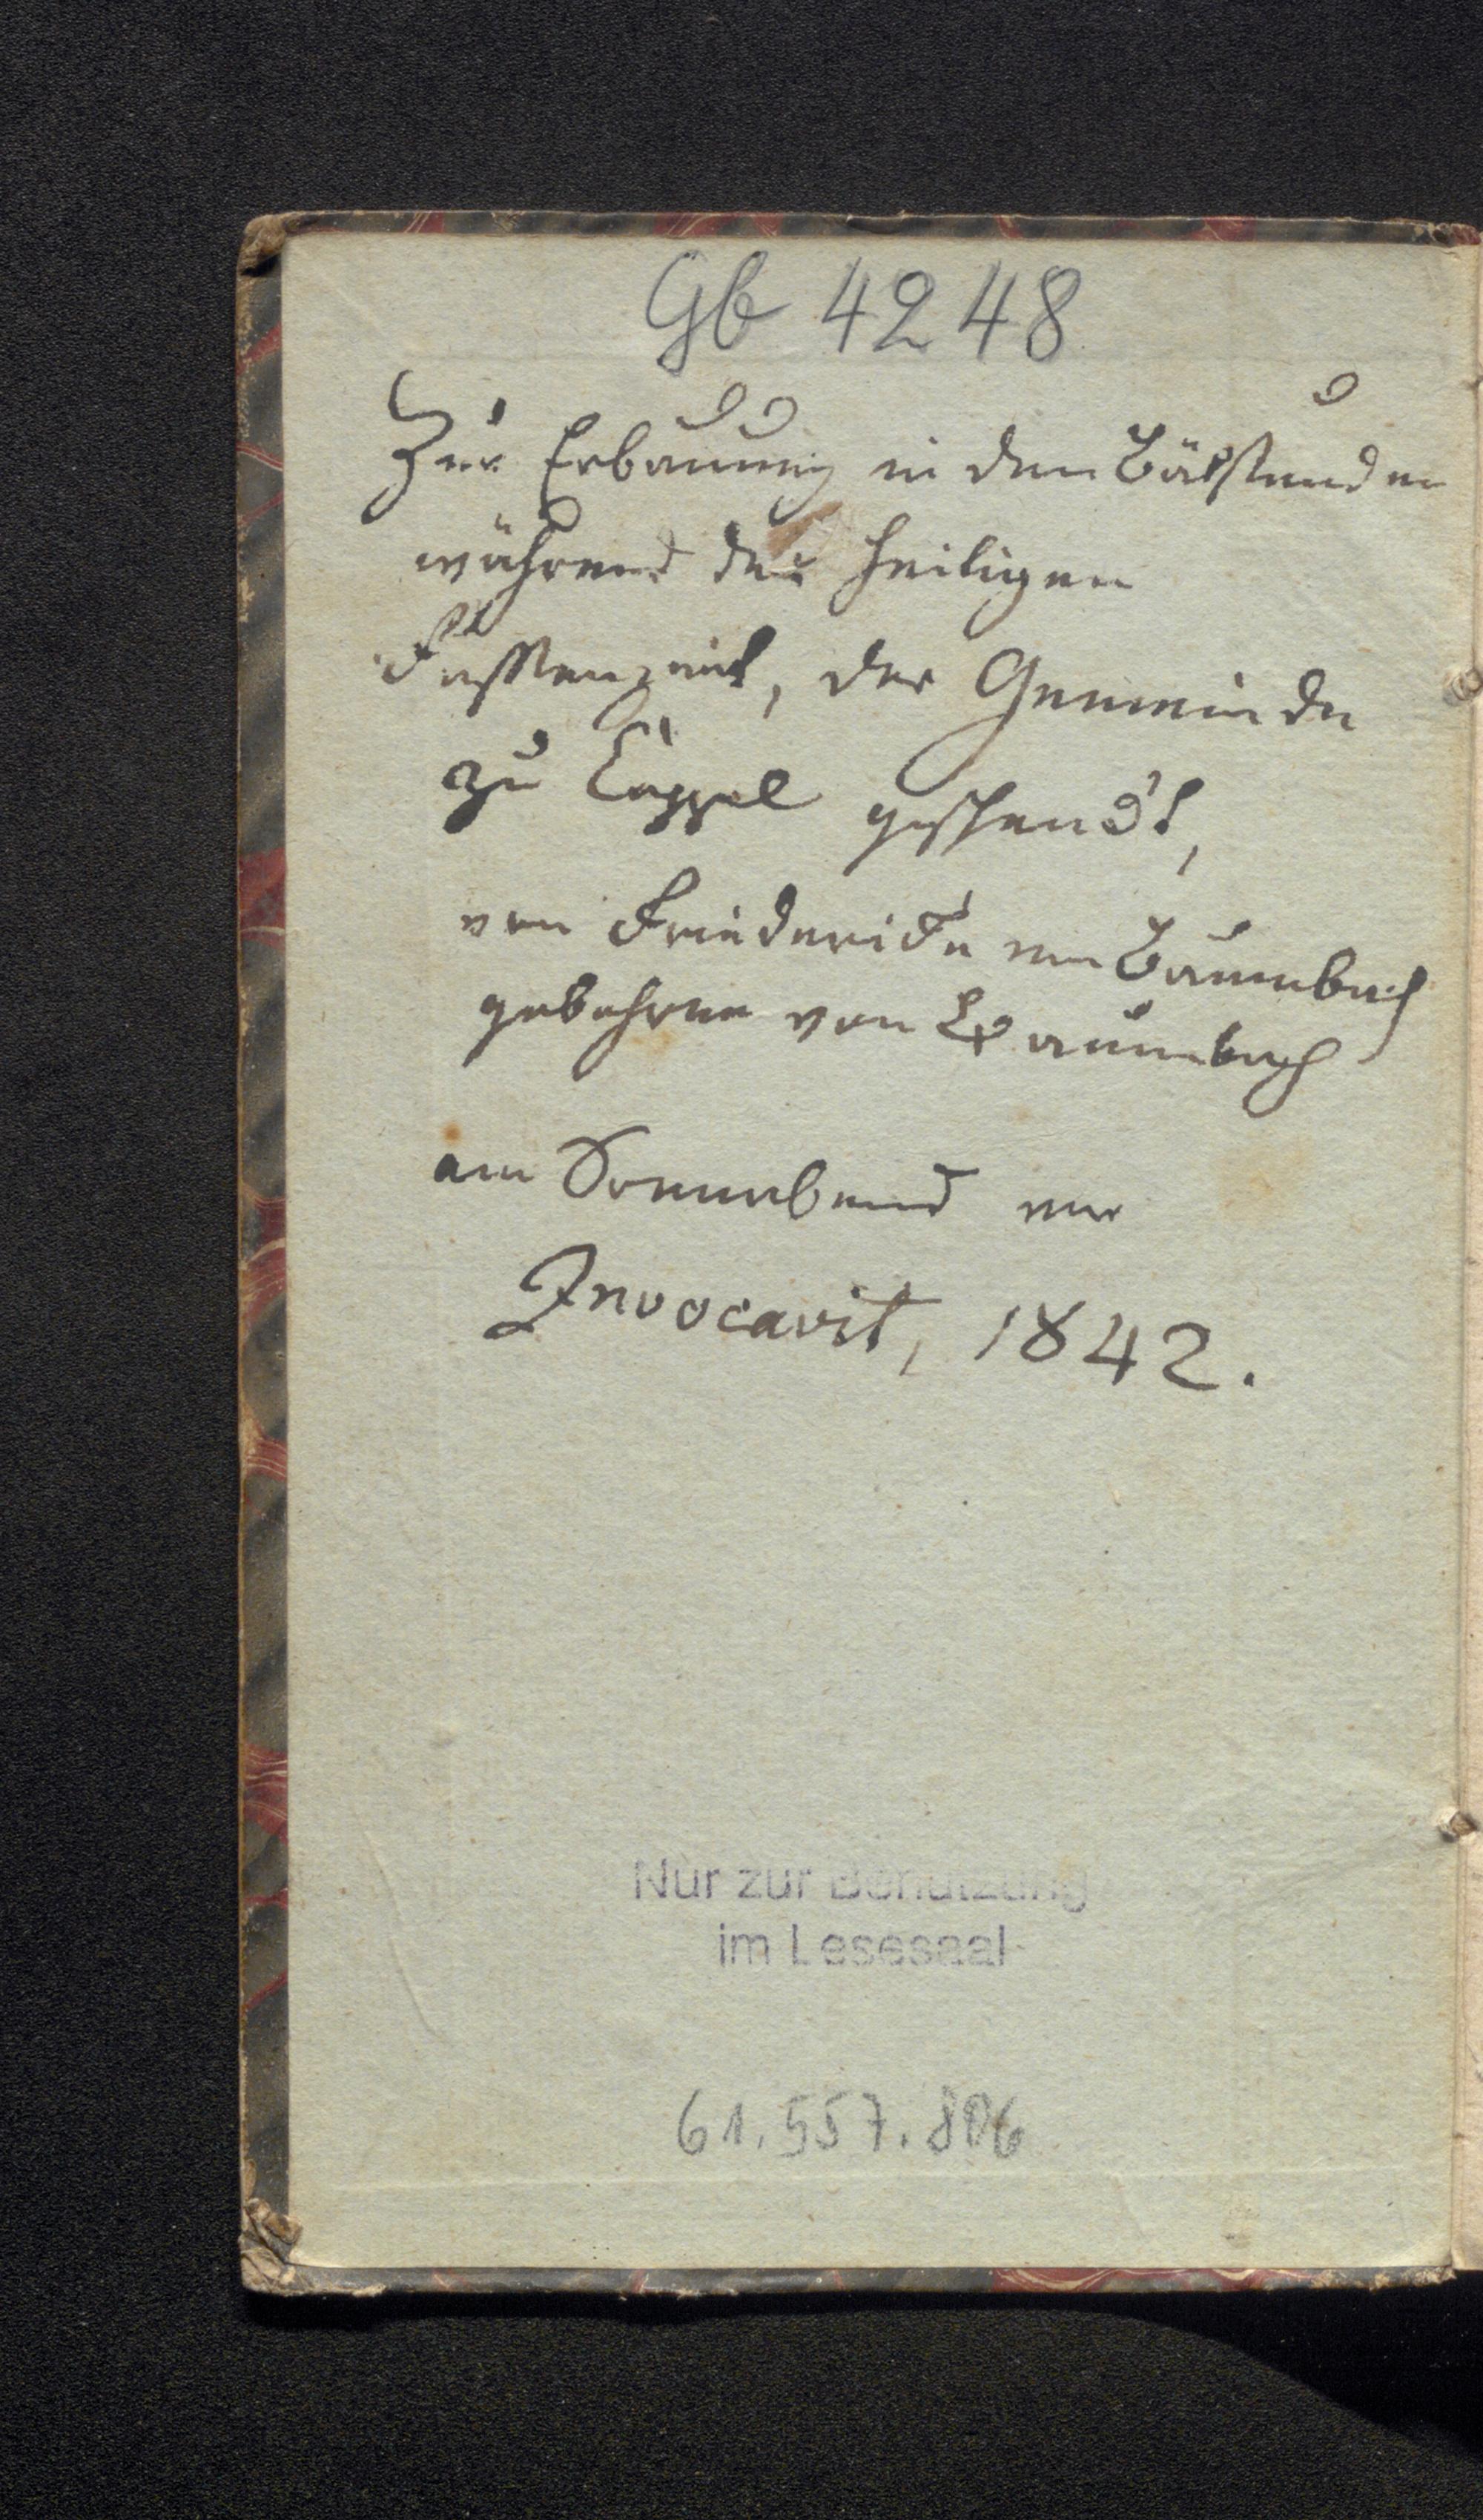 Gb 4248
Zur Erbauung in den Bätstunden
während der heiligen
Fastenzeit, der Gemeinde
zu Cappel geschenckt,
von Friedericke von Baumbach
gebohrne von Baumbach
am Sonnabend vor
Invocavit, 1842.
Nur zur Benutzung
im Lesesaal
61.557.806